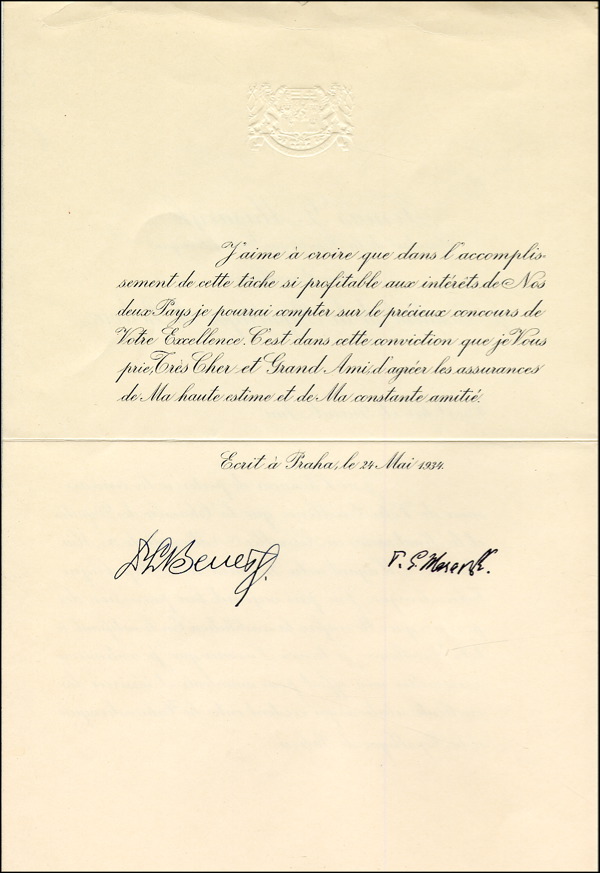 J'aime à croire que dans l'accomplis-
sement de cette tâche si profitable aux intérêts de Nos
deux Pays je pourrai compter sur le précieux concours de
Votre Excellence. C'est dans cette conviction que je Vous
prie, Très Cher et Grand Ami, d'agréer les assurances
de Ma haute estime et de Ma constante amitié.
Ecrit à Praha, le 24 Mai 1934.
T. G. Masaryk.